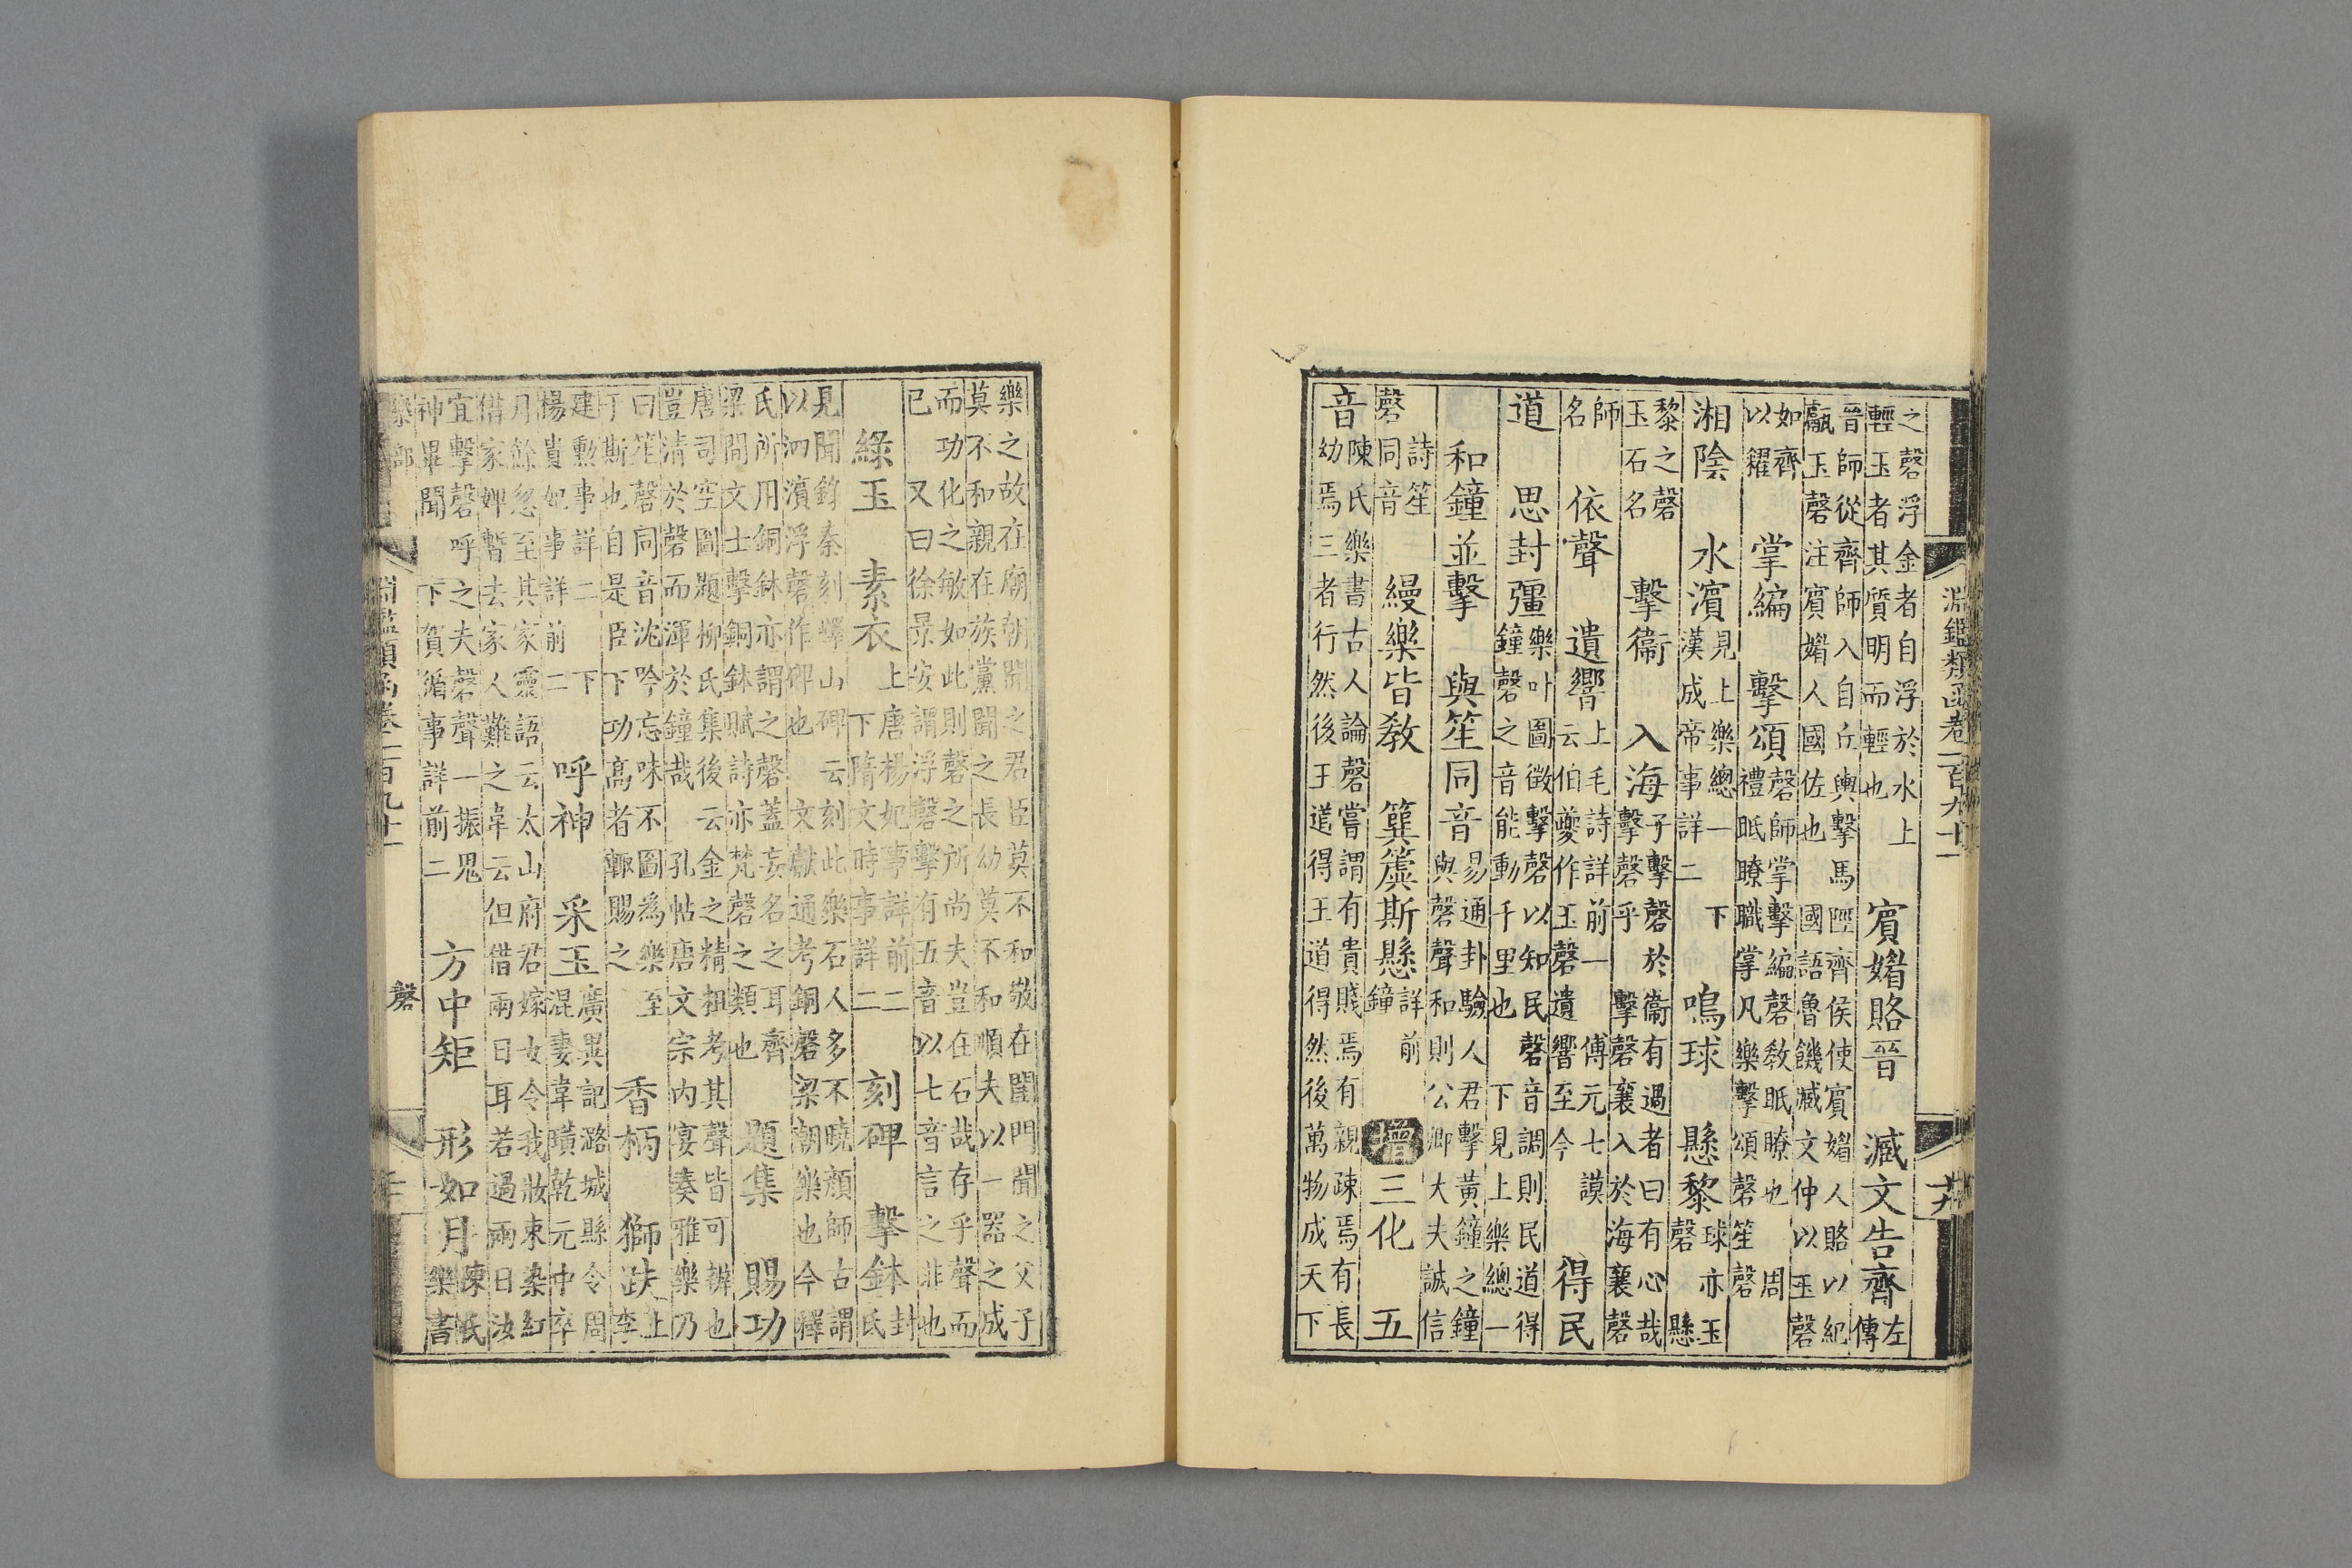 淵鑑類函卷一百九十一
之磬浮金者自浮於水上
輕玉者其質明而輕也
賓媚賂晉　臧文告齊左傳
晉師從齊師入自丘輿擊馬陘齊侯使賓媚人賂以紀
甗玉磬注賓媚人國佐也　國語魯饑臧文仲以玉磬
如齊
以糴
掌編　擊頌磬師掌擊編磬敎眡瞭也　周
禮眡瞭職掌凡樂擊頌磬笙磬
湘陰　水濱見上樂總一　下
漢成帝事詳二
鳴球　懸黎球亦玉
磬　懸
黎之磬
玉石名
擊衞　入海子擊磬於衞有過者曰有心哉
擊磬乎　擊磬襄入於海襄磬
師
名
依聲　遺響上毛詩詳前一　傅元七謨
云伯夔作玉磬遺響至今
得民
道　思封彊樂叶圖徵擊磬以知民磬音調則民道得
鐘磬之音能動千里也　下見上樂總一
和鐘並擊　與笙同音易通卦驗人君擊黃鐘之鐘
與磬聲和則公卿大夫誠信
詩笙
磬同音
縵樂皆敎　簨簴斯懸詳前
鐘
增三化　五
音陳氏樂書古人論磬嘗謂有貴賤焉有親疎焉有長
幼焉三者行然後王道得王道得然後萬物成天下
樂之故在廟朝聞之君臣莫不和敬在閨門聞之父子
莫不和親在族黨聞之長幼莫不和順夫以一器之成
而功化之敏如此則磬之所尚夫豈在石哉存乎聲而
已　又曰徐景安謂浮磬擊有五音以七音言之非也
綠玉　素衣上唐楊妃事詳前二
下隋文時事詳二
刻碑　擊鉢封
氏
見聞鈞秦刻嶧山碑云刻此樂石人多不曉顔師古謂
以泗濱浮磬作碑也　文獻通考銅磬梁朝樂也今釋
氏所用銅鉢亦謂之磬蓋妄名之耳齊
梁間文士擊銅鉢賦詩亦梵磬之類也
題集　賜功
唐司空圖題柳氏集後云金之精粗考其聲皆可辨也
豈清於磬而渾於鐘哉　孔帖唐文宗内宴奏雅樂乃
曰笙磬同音沈吟忘味不圖爲樂至
于斯也自是臣下功高者輒賜之
香柄　獅趺上
李
建勳事詳二　下
楊貴妃事詳前二
呼神　采玉廣異記潞城縣令周
混妻韋璜乾元中卒
月餘忽至其家靈語云太山府君嫁女令我妝束染紅
借家婢暫去家人難之韋云但借兩日耳若過兩日汝
宜擊磬呼之夫磬聲一振鬼
神畢聞　下賀循事詳前二
方中矩　形如月陳氏
樂書
樂部
磬